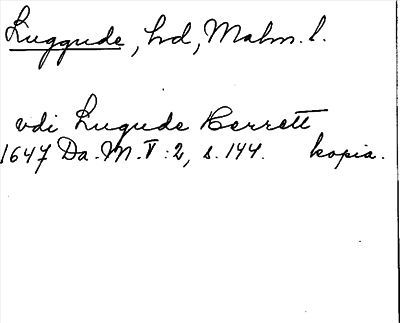 Luggude, hd, Malm. l.
vdi Lugude Herrett
1647 Da. M. V:2, s. 144. kopia.